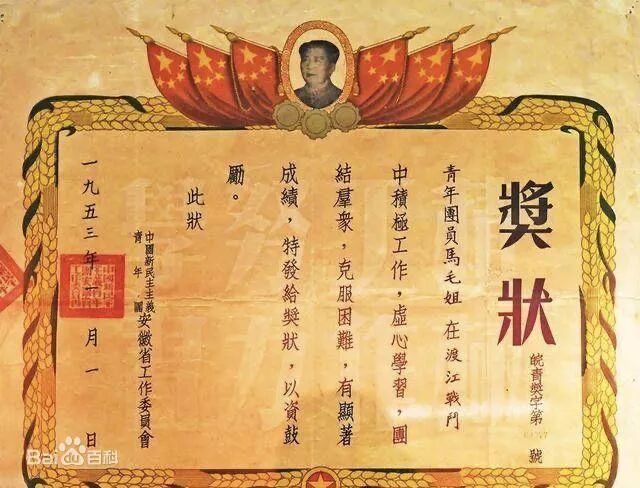 獎狀
皖青獎字第 號
青年團員馬毛姐在渡江戰鬥
中積極工作，虛心學習，團
結羣衆，克服困難，有顯著
成績，特發給獎狀，以資鼓
勵。
此狀
中國新民主主義
青年團
安徽省工作委員會
一九五三年一月一日
Bai百科